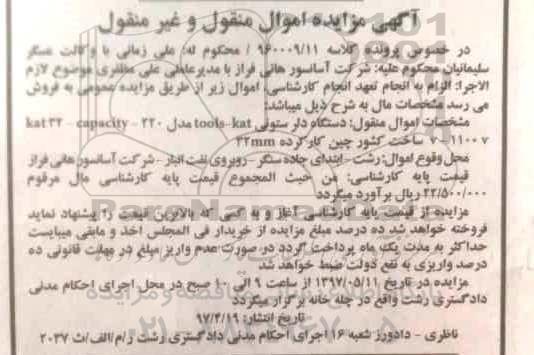 آگهی مزایده اموال منقول و غیر منقول
در خصوص پرونده کلاسه ۹۶۰۰۰۹/۱۱ / محکوم له: علی زمانی با وکالت عسگر
سلیمانیان محکوم علیه: شرکت آسانسور هانی فراز با مدیرعاملی علی مظفری موضوع لازم
الاجرا: الزام به انجام تعهد انجام کارشناسی، اموال زیر از طریق مزایده عمومی به فروش
می رسد مشخصات مال به شرح ذیل میباشد:
مشخصات اموال منقول: دستگاه دلر ستونی tools-kat مدل ۲۲۰ – kat ۳۲ – capacity
۷۰ – ۱۱۰۰ ساخت کشور چین کارکرده ۳۲mm
محل وقوع اموال: رشت – ابتدای جاده سنگر – روبروی نفت انبار – شرکت آسانسور هانی فراز
قیمت پایه کارشناسی: من حیث المجموع قیمت پایه کارشناسی مال مرقوم
۲۲/۵۰۰/۰۰۰ ریال برآورد میگردد
مزایده از قیمت پایه کارشناسی آغاز و به کسی که بالاترین قیمت را پیشنهاد نماید
فروخته خواهد شد ده درصد مبلغ مزایده از خریدار فی المجلس اخذ و مابقی میبایست
حداکثر به مدت یک ماه پرداخت گردد در صورت عدم واریز مبلغ در مهلت قانونی ده
درصد واریزی به نفع دولت ضبط خواهد شد
مزایده در تاریخ ۱۳۹۷/۰۵/۱۱ از ساعت ۹ الی ۱۰ صبح در محل اجرای احکام مدنی
دادگستری رشت واقع در چله خانه برگزار میگردد
تاریخ انتشار: ۹۷/۴/۱۹
ناظری – دادورز شعبه ۱۶ اجرای احکام مدنی دادگستری رشت ر/م/الف/ث ۲۰۳۷
ParsNamadData